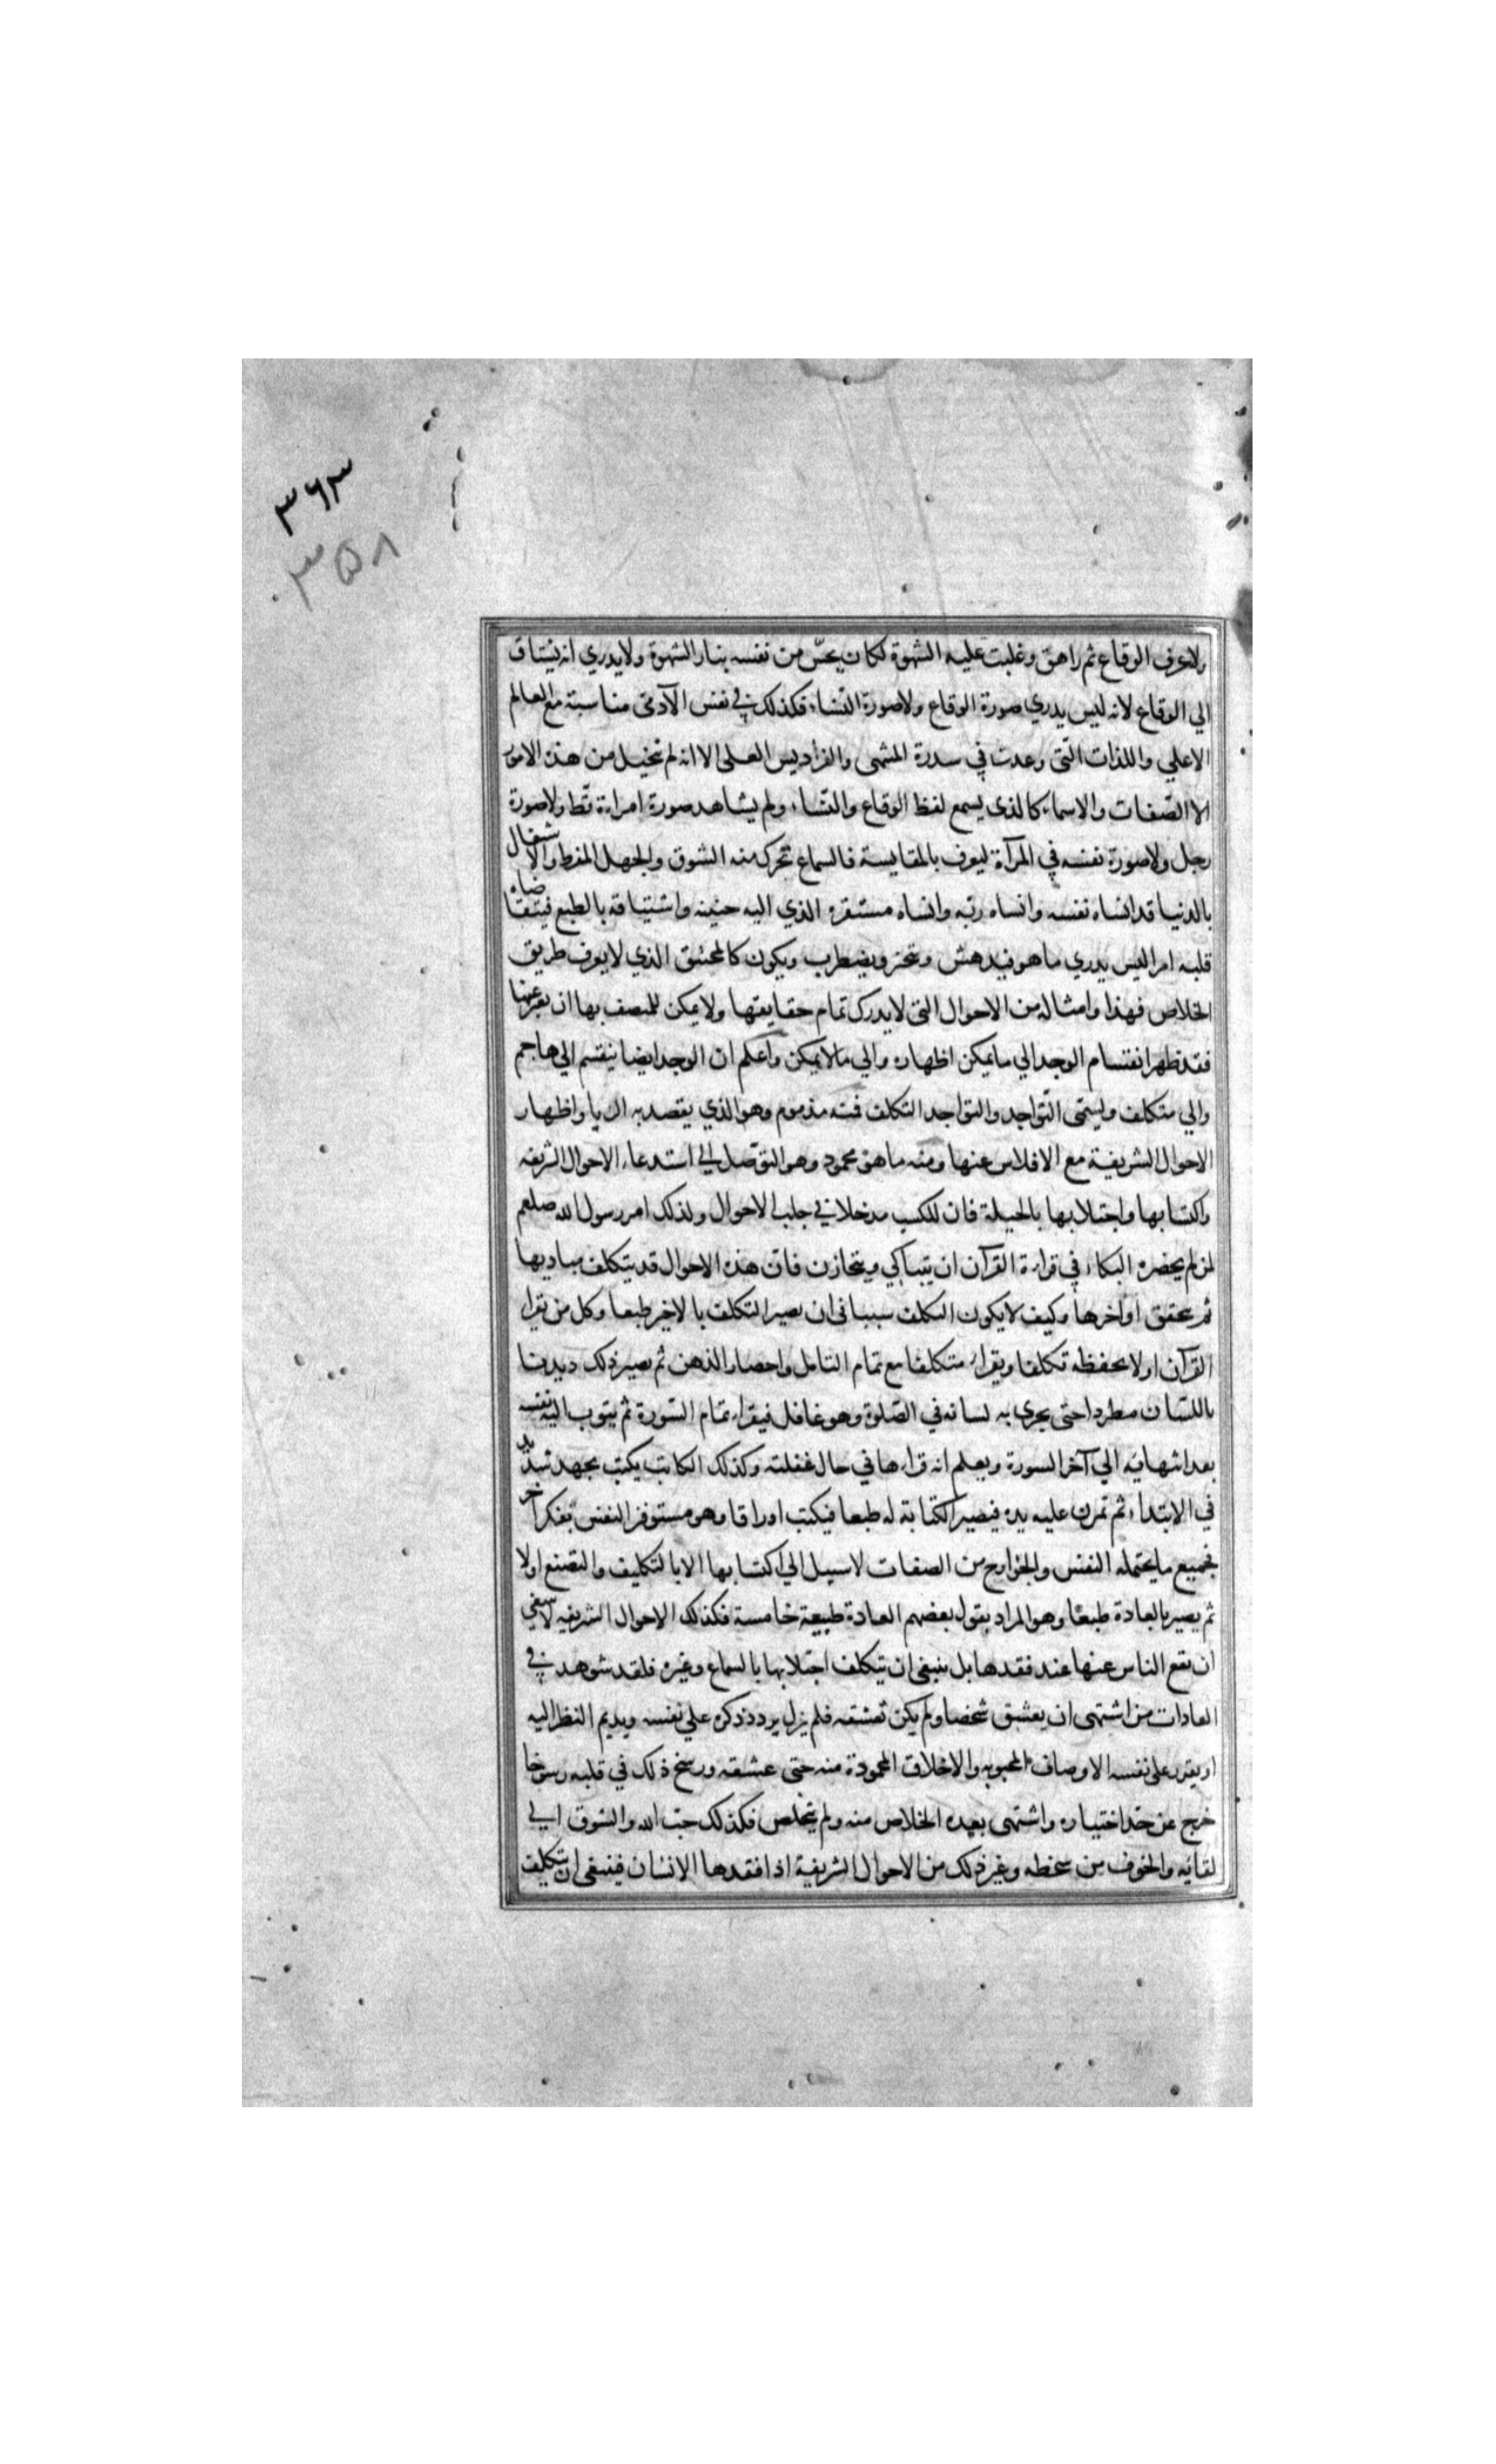 ٣٦٣
٣٥٨
ولا عرف الوقاع ثم راهق وغلبت عليه الشهوة لكان يحسّ من نفسه بنار الشهوة ولا يدري انه يشتاق
الي الوقاع لانه ليس يدري صورة الوقاع ولا صورة النساء فكذلك في نفس الآدمى مناسبة مع العالم
الاعلي واللذات التى وعدت في سدرة المنتهى والفراديس العلى الا انه لم يتخيل من هذه الامور
الا الصّفات والاسماء كالذى يسمع لفظ الوقاع والنّساء ولم يشاهد صورة امراءة قط ولا صورة
رجل ولا صورة نفسه في المرآة ليعرف بالمقايسة فالسماع تحرك منه الشوق والجهل المفرط والاشتغال
بالدنيا قد انساه نفسه وانساه ربّه وانساه مستقره الذي اليه حنينه واشتياقه بالطبع فيتقاضاه
قلبه امرا ليس يدري ما هو فيدهش ويتحير ويضطرب ويكون كالمختنق الذي لا يعرف طريق
الخلاص فهذا وامثاله من الاحوال التى لا يدرك تمام حقايقها ولا يمكن للمتصف بها ان يعبر عنها
فقد ظهر انقسام الوجد الي ما يمكن اظهاره والي ما لا يمكن واعلم ان الوجد ايضا ينقسم الي هاجم
والي متكلف ويسمّى التّواجد والتواجد التكلف فمنه مذموم وهو الذي يقصد به الريا واظهار
الاحوال الشريفة مع الافلاس عنها ومنه ما هو محمود وهو التوصّل الي استدعاء الاحوال الشريفه
واكتسابها واجتلابها بالحيلة فان للكسب مدخلا في جلب الاحوال ولذلك امر رسول الله صلعم
لمن لم يحضره البكاء في قراءة القرآن ان يتباكي ويتحازن فان هذه الاحوال قد يتكلف مباديها
ثم يتحقق اواخرها وكيف لا يكون التكلف سببا فى ان يصير التكلف بالاخير طبعا وكل من يقرا
القرآن اولا يحفظه تكلفا ويقراء متكلفا مع تمام التامل واحضار الذهن ثم يصير ذلك ديدنا
باللسان مطردا حتى يجرى به لسانه في الصّلوة وهو غافل فيقراء تمام السّورة ثم يتوب اليه نفسه
بعد انتهائه الي آخر السورة ويعلم انه قراءها في حال غفلته وكذلك الكاتب يكتب بجهد شديد
في الابتداء ثم تمرن عليه يده فيصير الكتابة له طبعا فيكتب اوراقا وهو مستوفز النفس بفكر آخر
فجميع ما يحتمله النفس والجوارح من الصفات لا سبيل الي اكتسابها الا بالتكليف والتصنع اولا
ثم يصير بالعادة طبعًا وهو المراد بقول بعضهم العادة طبيعة خامسة فكذلك الاحوال الشريفه لا ينبغي
ان يقع الناس عنها عند فقدها بل ينبغى ان يتكلف اجتلابها بالسماع وغيره فلقد شوهد في
العادات من اشتهى ان يعشق شخصا ولم يكن تعشقه فلم يزل يردد ذكره علي نفسه ويديم النظر اليه
او يقرر على نفسه الاوصاف المحبوبه والاخلاق المحمودة منه حتى عشقه ورسخ ذلك في قلبه رسوخا
خرج عن حدّ اختياره واشتهى بعده الخلاص منه ولم يتخلص فكذلك حبّ الله والشوق الي
لقائه والخوف من سخطه وغير ذلك من الاحوال الشريفة اذا فقدها الانسان فينبغى ان يتكلف